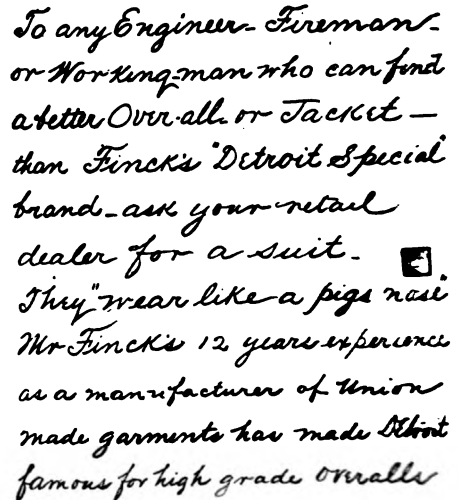 To any Engineer - Fireman -
or Working-man who can find
a better Over-all - or Jacket —
than Finck's "Detroit Special"
brand - ask your retail
dealer for a suit.
They "wear like a pigs nose"
Mr Finck's 12 years experience
as a manufacturer of Union
made garments has made Detroit
famous for high grade overalls